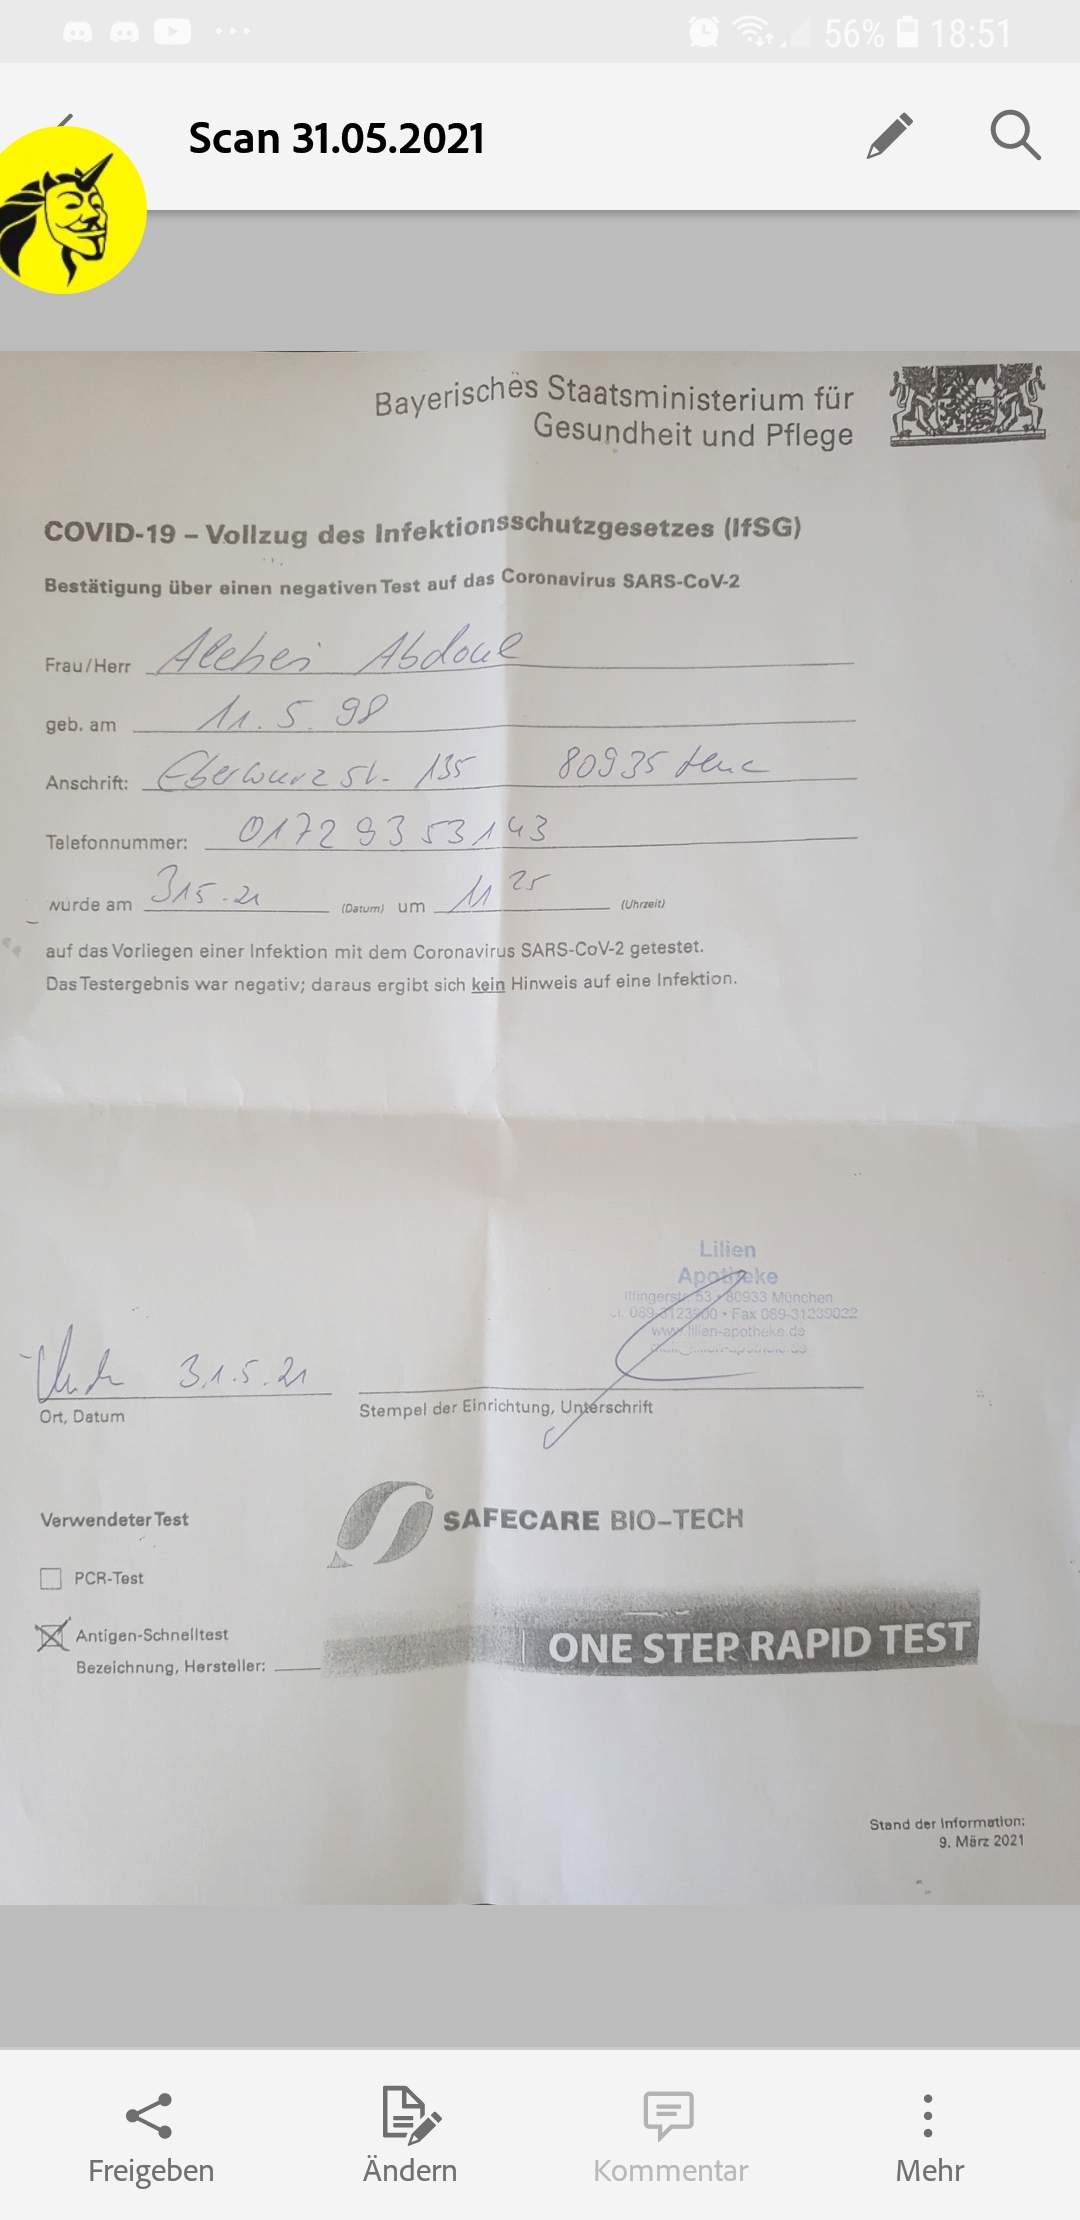 56% 18:51
Scan 31.05.2021
Bayerisches Staatsministerium für
Gesundheit und Pflege
COVID-19 – Vollzug des Infektionsschutzgesetzes (IfSG)
Bestätigung über einen negativen Test auf das Coronavirus SARS-CoV-2
Frau/Herr Abdoul
geb. am 11.5.98
Anschrift: Eberwurz st. 135 80935
Telefonnummer: 0172 9353143
wurde am 315.21 (Datum) um 11 25 (Uhrzeit)
auf das Vorliegen einer Infektion mit dem Coronavirus SARS-CoV-2 getestet.
Das Testergebnis war negativ; daraus ergibt sich kein Hinweis auf eine Infektion.
Lilien
Apotheke
53 • 80933 München
089-3123900 • Fax 089-31239022
www.lilien-apotheke.de
31.5.21
Ort, Datum
Stempel der Einrichtung, Unterschrift
Verwendeter Test
SAFECARE BIO-TECH
PCR-Test
Antigen-Schnelltest
Bezeichnung, Hersteller:
ONE STEP RAPID TEST
Stand der Information:
9. März 2021
Freigeben Ändern Kommentar Mehr